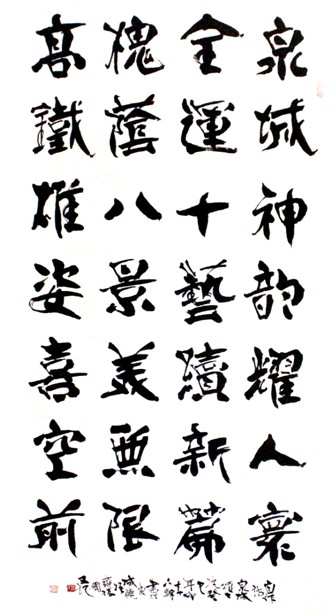 泉城神韵耀人寰
全運十藝續新篇
槐蔭八景美無限
高鐵雄姿喜空前